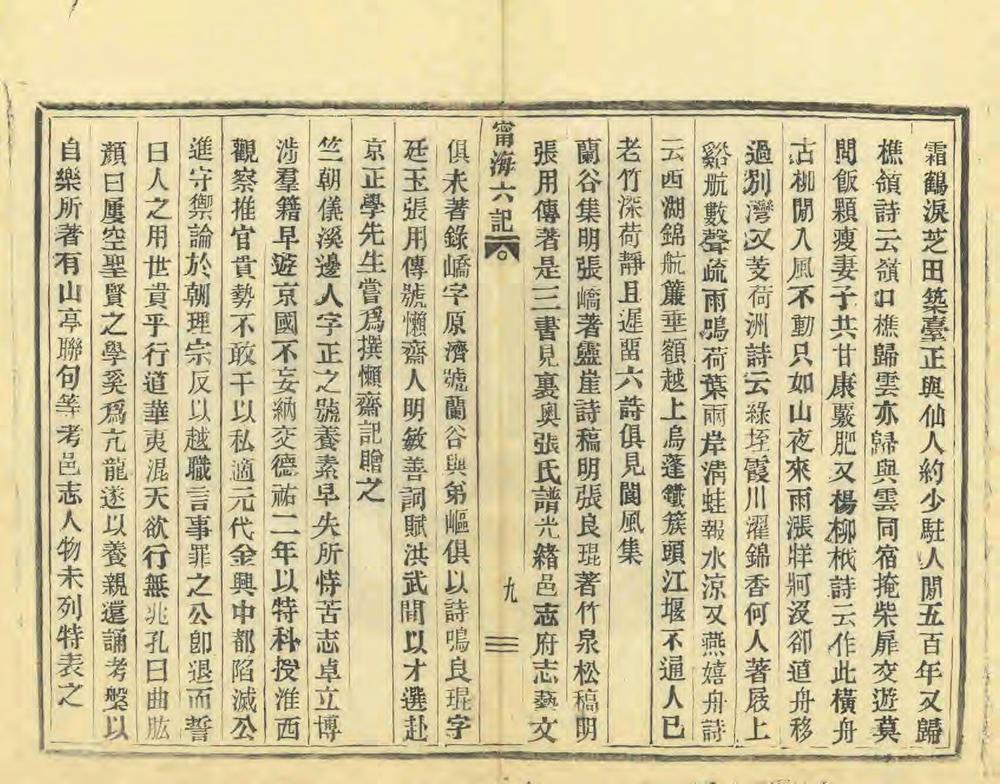 霜鶴淚芝田築臺正與仙人約少駐人閒五百年又歸
樵嶺詩云嶺口樵歸雲亦歸與雲同宿掩柴扉交遊莫
問飯顆瘦妻子共甘康覈肥又楊柳栰詩云作此橫舟
古柳閒入風不動只如山夜來雨漲牂牁沒卻道舟移
過別灣又芰荷洲詩云綠垤霞川濯錦香何人著屐上
谿航數聲疏雨鳴荷葉兩岸淸蛙報水涼又燕嬉舟詩
云西湖錦航簾垂額越上烏蓬鐵簇頭江堰不通人已
老竹深荷靜且遲畱六詩俱見閬風集
蘭谷集明張嶠著靈崖詩稿明張良琨著竹泉松稿明
張用傳著是三書見裏奧張氏譜光緖邑志府志藝文
甯海六記
九
俱未著錄嶠字原濟號蘭谷與弟嶇俱以詩鳴良琨字
廷玉張用傳號懶齋人明敏善詞賦洪武閒以才選赴
京正學先生嘗爲撰懶齋記贈之
竺朝儀溪邊人字正之號養素早失所恃苦志卓立博
涉羣籍早遊京國不妄納交德祐二年以特科授淮西
觀察推官貴勢不敢干以私適元代金興中都陷滅公
進守禦論於朝理宗反以越職言事罪之公卽退而誓
曰人之用世貴乎行道華夷混天欲行無兆孔曰曲肱
顏曰屢空聖賢之學奚爲亢龍遂以養親還誦考槃以
自樂所著有山亭聯句等考邑志人物未列特表之